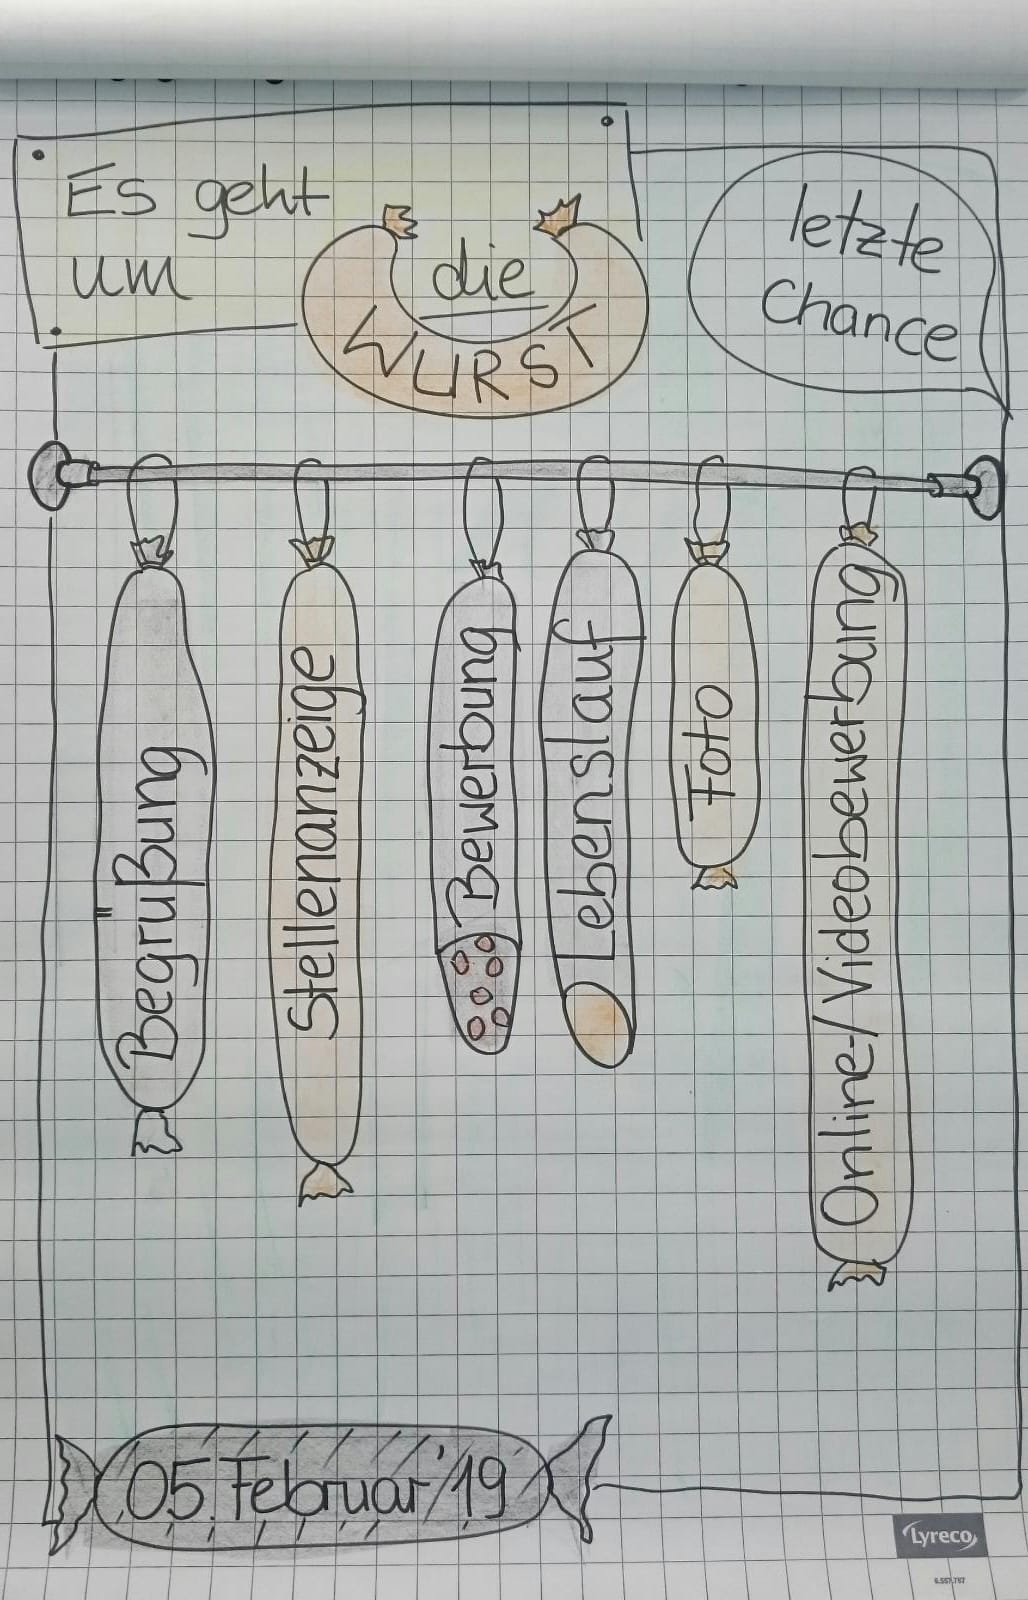 Es geht
um die
WURST
letzte
Chance
Begrüßung
Stellenanzeige
Bewerbung
Lebenslauf
Foto
Online-/Videobewerbung
05. Februar '19
Lyreco
6.557.767